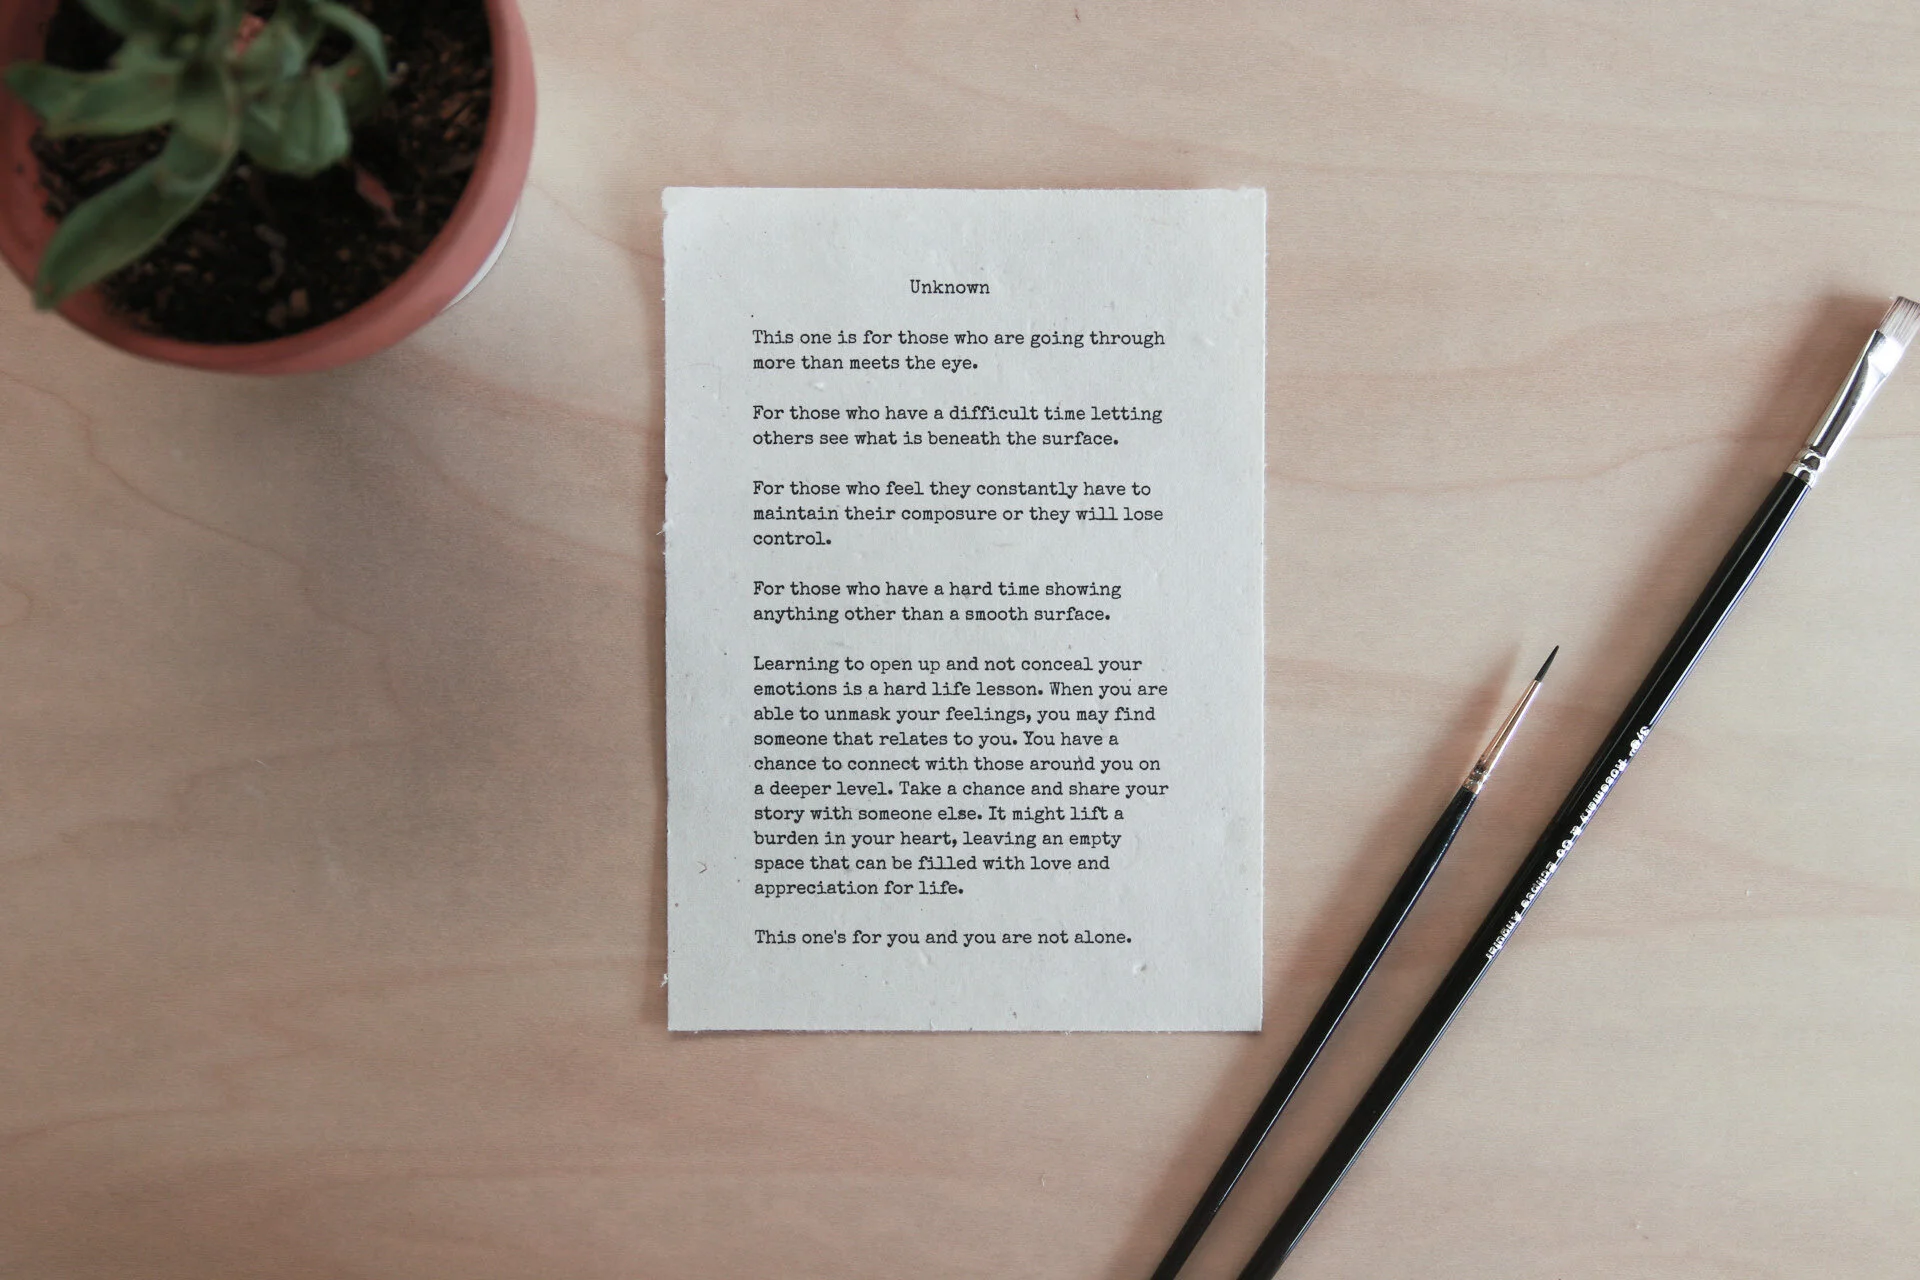 Unknown
This one is for those who are going through
more than meets the eye.
For those who have a difficult time letting
others see what is beneath the surface.
For those who feel they constantly have to
maintain their composure or they will lose
control.
For those who have a hard time showing
anything other than a smooth surface.
Learning to open up and not conceal your
emotions is a hard life lesson. When you are
able to unmask your feelings, you may find
someone that relates to you. You have a
chance to connect with those around you on
a deeper level. Take a chance and share your
story with someone else. It might lift a
burden in your heart, leaving an empty
space that can be filled with love and
appreciation for life.
This one's for you and you are not alone.
Rosemary & Co Eclipse Angular